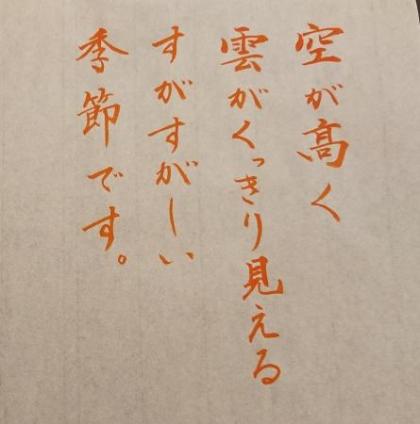 空が高く
雲がくっきり見える
すがすがしい
季節です。